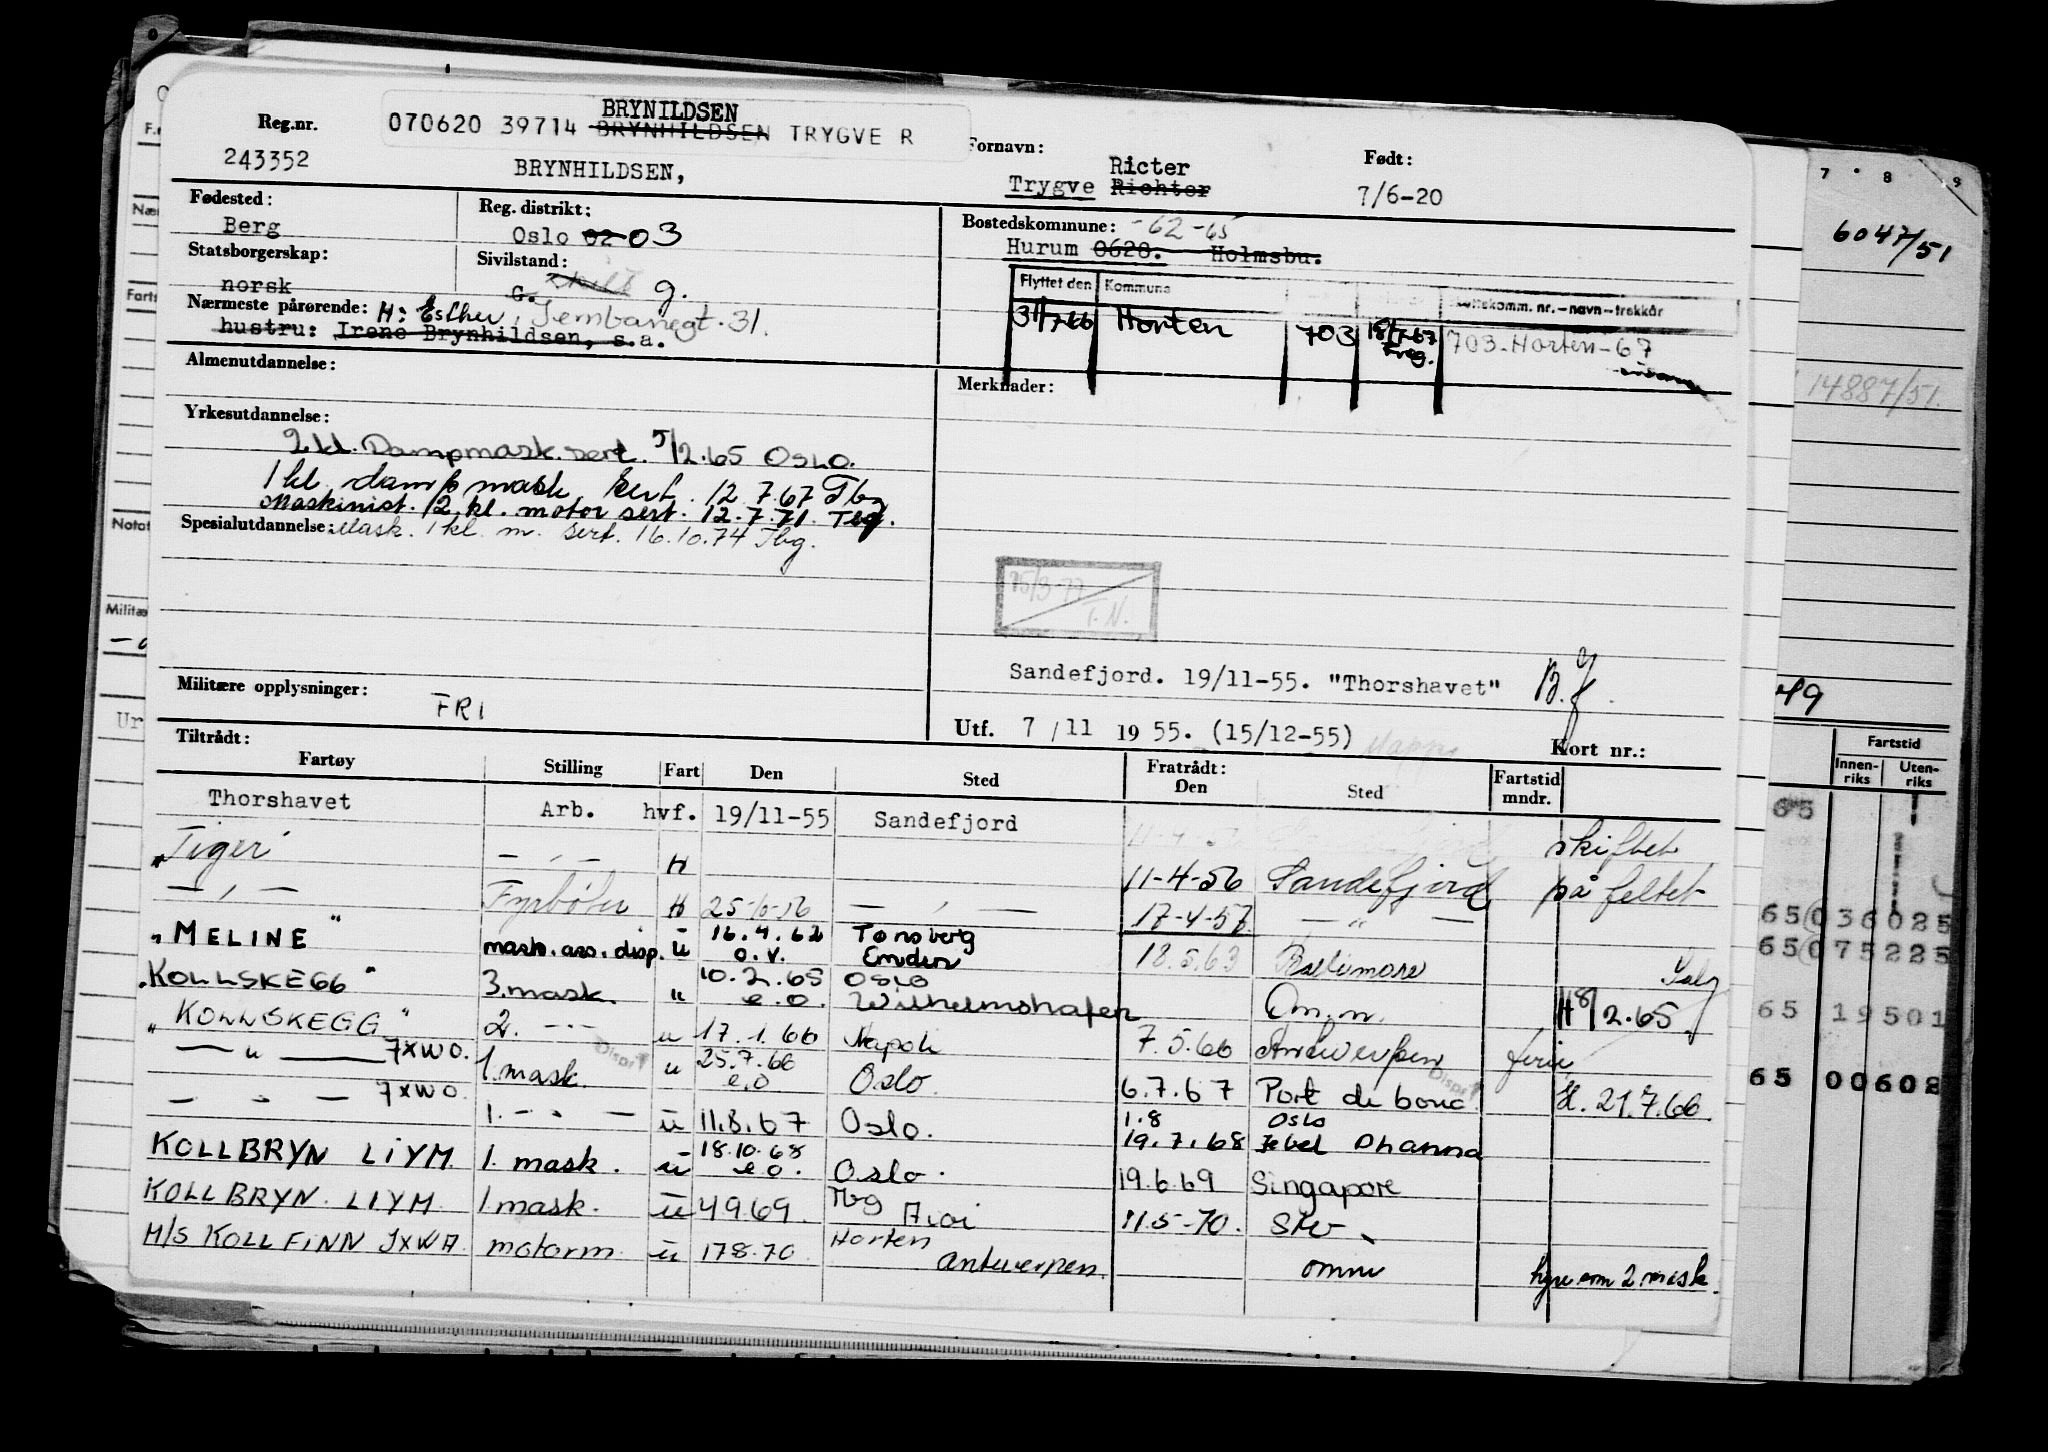 BRYNILDSEN
070620 39714 BRYNHILDSEN TRYGVE R
Reg.nr.
243352
BRYNHILDSEN,
Fornavn:
Ricter
Trygve Richter
Født:
7/6-20
Fødested:
Berg
Reg. distrikt:
Oslo 02 03
Bostedskommune: -62-65
Hurum 0628. Holmsbu.
Statsborgerskap:
norsk
Sivilstand:
G. skilt g.
Flyttet den Kommune komm. nr.-navn-trekkår
31/7-66 Horten 703 18/1-67 Freg. 703-Horten-67
Nærmeste pårørende: H: Esther, 31.
hustru: Irene Brynhildsen, s.a.
Almenutdannelse:
Merknader:
Yrkesutdannelse:
2 kl. Dampmask. sert. 5/2.65 Oslo.
1 kl damp mask sert. 12.7.67 Tbg
Maskinist. 2. kl. motor sert. 12.7.71. Tbg.
Spesialutdannelse: Mask. 1 kl. m. sert. 16.10.74 Tbg.
15/3-77
T.N.
Sandefjord. 19/11-55. "Thorshavet"
Militære opplysninger:
FRI
Utf. 7/11 1955. (15/12-55)
Kort nr.:
Tiltrådt:
Fartøy Stilling Fart Den Sted Fratrådt: Den Sted Fartstid mndr.
Thorshavet Arb. hvf. 19/11-55 Sandefjord
"Tiger" — " — H 11-4-56 Sandefjord skiftet på feltet
— " — Fyrbøter H 25-10-56 — " — 17-4-57 — " —
"MELINE" mask. ass. disp. u 16.4.62 o.v. Tønsberg Emden 18.5.63 Baltimore Salg
"KOLLSKEGG" 3. mask. " 10.2.65 e.o. Oslo Wilhelmshafen Om.m. H 8/2.65
"KOLLSKEGG" 2. — " — u 17.1.66 Napoli 7.5.66 Antwerpen ferie
— " — JXWO. 1. mask. u 25.7.66 e.o Oslo. 6.7.67 Port de bouc H. 21.7.66.
— " — JXWO. 1. — " — u 11.8.67 Oslo. 1.8 Oslo
19.7.68 Jebel Dhanna
KOLLBRYN LIYM 1. mask. u 18.10.68 e.o. Oslo. 19.6.69 Singapore
KOLLBRYN. LIYM 1. mask. u 4.9.69. Tbg 11.5-70.
M/S KOLLFINN JXWA motorm. u 17.8.70 Horten Antwerpen. omm hyre som 2 mask.
7 8 9
6047/51
14887/51.
49
Fartstid
Innen-riks Uten-riks
65
65 036025
65 075225
65 19501
65 00602
Notat